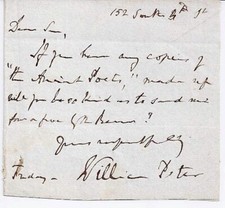 152 South 4th St
Dear Sir,
If you have any copies of
"the Ancient Poets," made up
will you be so kind as to send me
four or five
Yours respectfully
Friday - William Peter